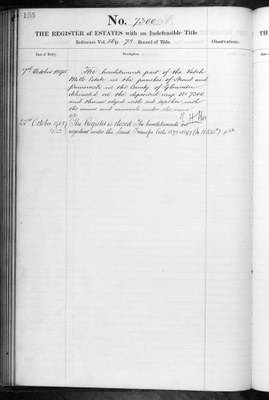 155
No. 7200
THE REGISTER of ESTATES with an Indefeasible Title.
Reference Vol. Fo. 70 Record of Title.
Observations.
Date of Entry.
Description.
7th October
The hereditaments part of the
Mills Estate in the parishes of Stroud and
in the County of Gloucester
delineated on the deposited map No 7200
and thereon edged with red together with
the mines and minerals under the same
22nd October
The Register is closed. The hereditaments are
registered under the Land Transfer Acts 1875 & 1897